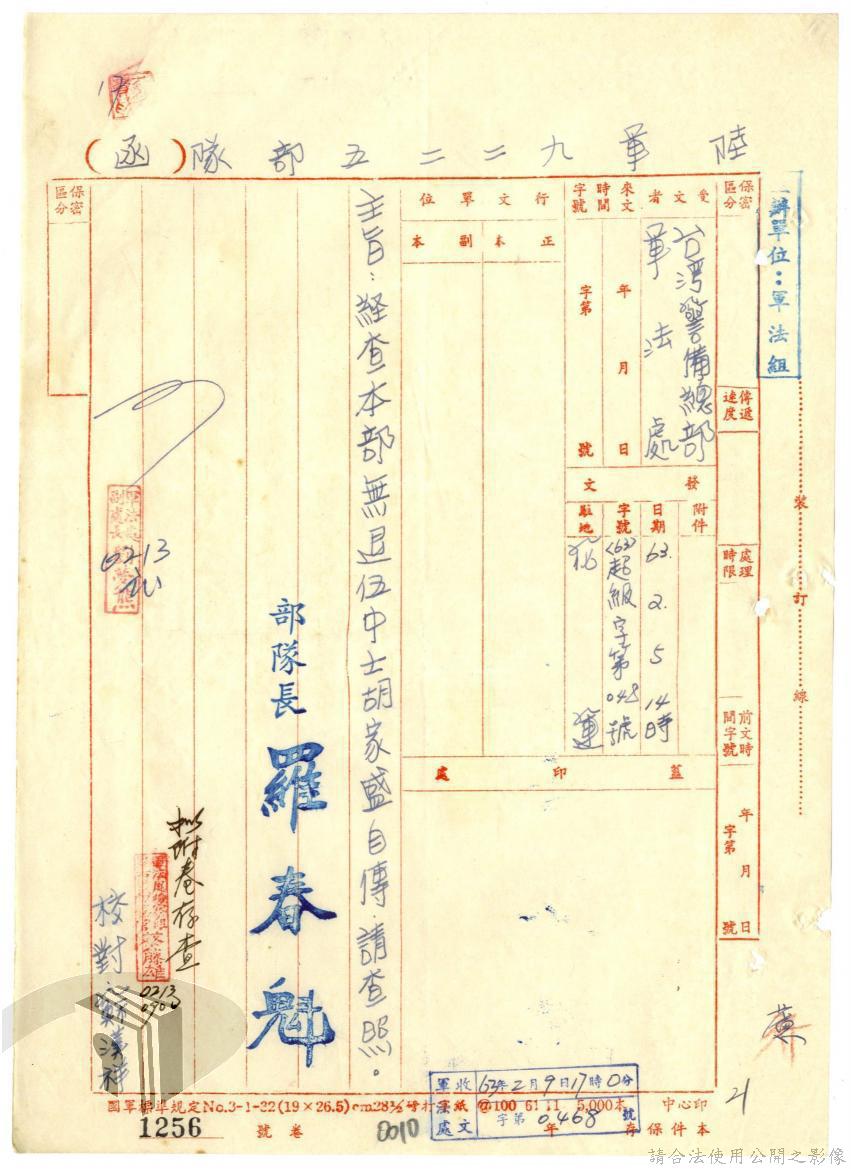 陸軍九二二五部隊(函)
承辦單位：軍法組
裝訂線
保密區分
傳遞速度
處理時限
前文時間字號
年月日
字第號
受文者
台灣警備總部
軍法處
來文時間字號
年月日
字第號
發文
附件
日期
63. 2. 5 14時
字號
(63)起級字第048號
駐地
行文單位
正本
副本
蓋印處
主旨：經查本部無退伍中士胡家盛自傳．請查照。
部隊長 羅春魁
擬附卷存查
0213
0900
軍法處副處長
0213
校對
保密區分
軍法處收文
63年2月9日17時0分
字第0468號
國軍標準規定No.3-1-22(19×26.5)cm28½磅打字紙@100 61.11 5,000本
中心印
本件保存年
卷號
1256
0010
21
請合法使用公開之影像